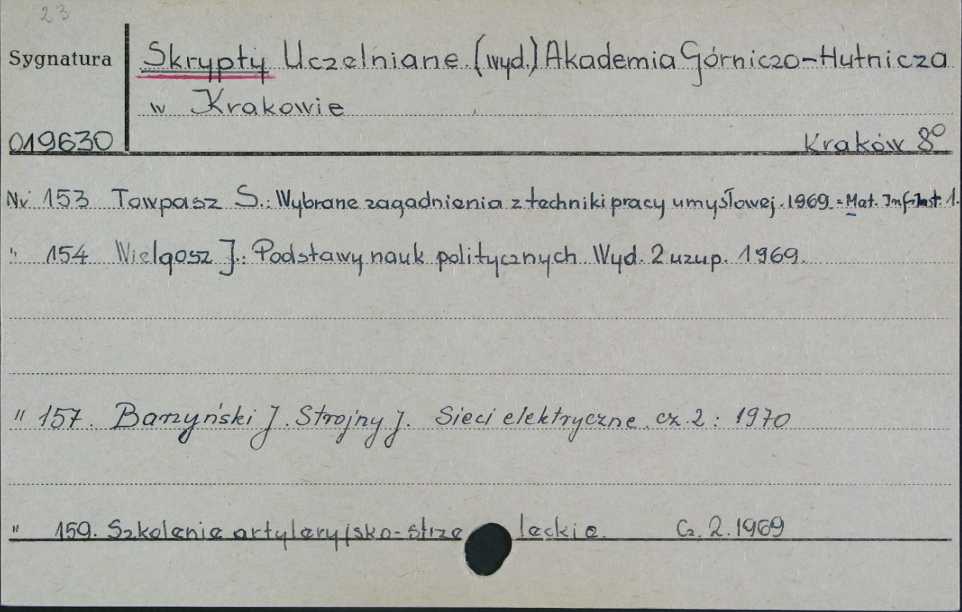 23
Sygnatura Skrypty Uczelniane (wyd.) Akademia Górniczo-Hutnicza
w Krakowie
019630 Kraków 8°
Nr 153 Towpasz S.: Wybrane zagadnienia z techniki pracy umysłowej. 1969 = Mat. Inf-Inst. 1.
" 154 Wielgosz J.: Podstawy nauk politycznych Wyd. 2 uzup. 1969.
" 157. Barzyński J. Strojny J. Sieci elektryczne. cz. 2: 1970
" 159. Szkolenie artyleryjsko-strzeleckie. Cz. 2. 1969